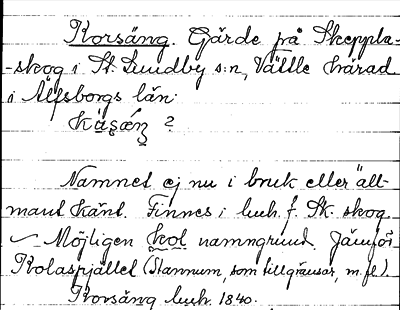 Korsäng. Gärde på Skeppla-
-skog i St. Lundby s:n, Vättle härad
i Älfsborgs län.
?
Namnet ej nu i bruk eller "all-
mant känt. Finnes i luuh. f. Sk. skog
Möjligen Kol namngrund. Jämför
Kolaspjället (Stannum, som tillgränsar, m.fl.)
Korsäng luuh. 1840.